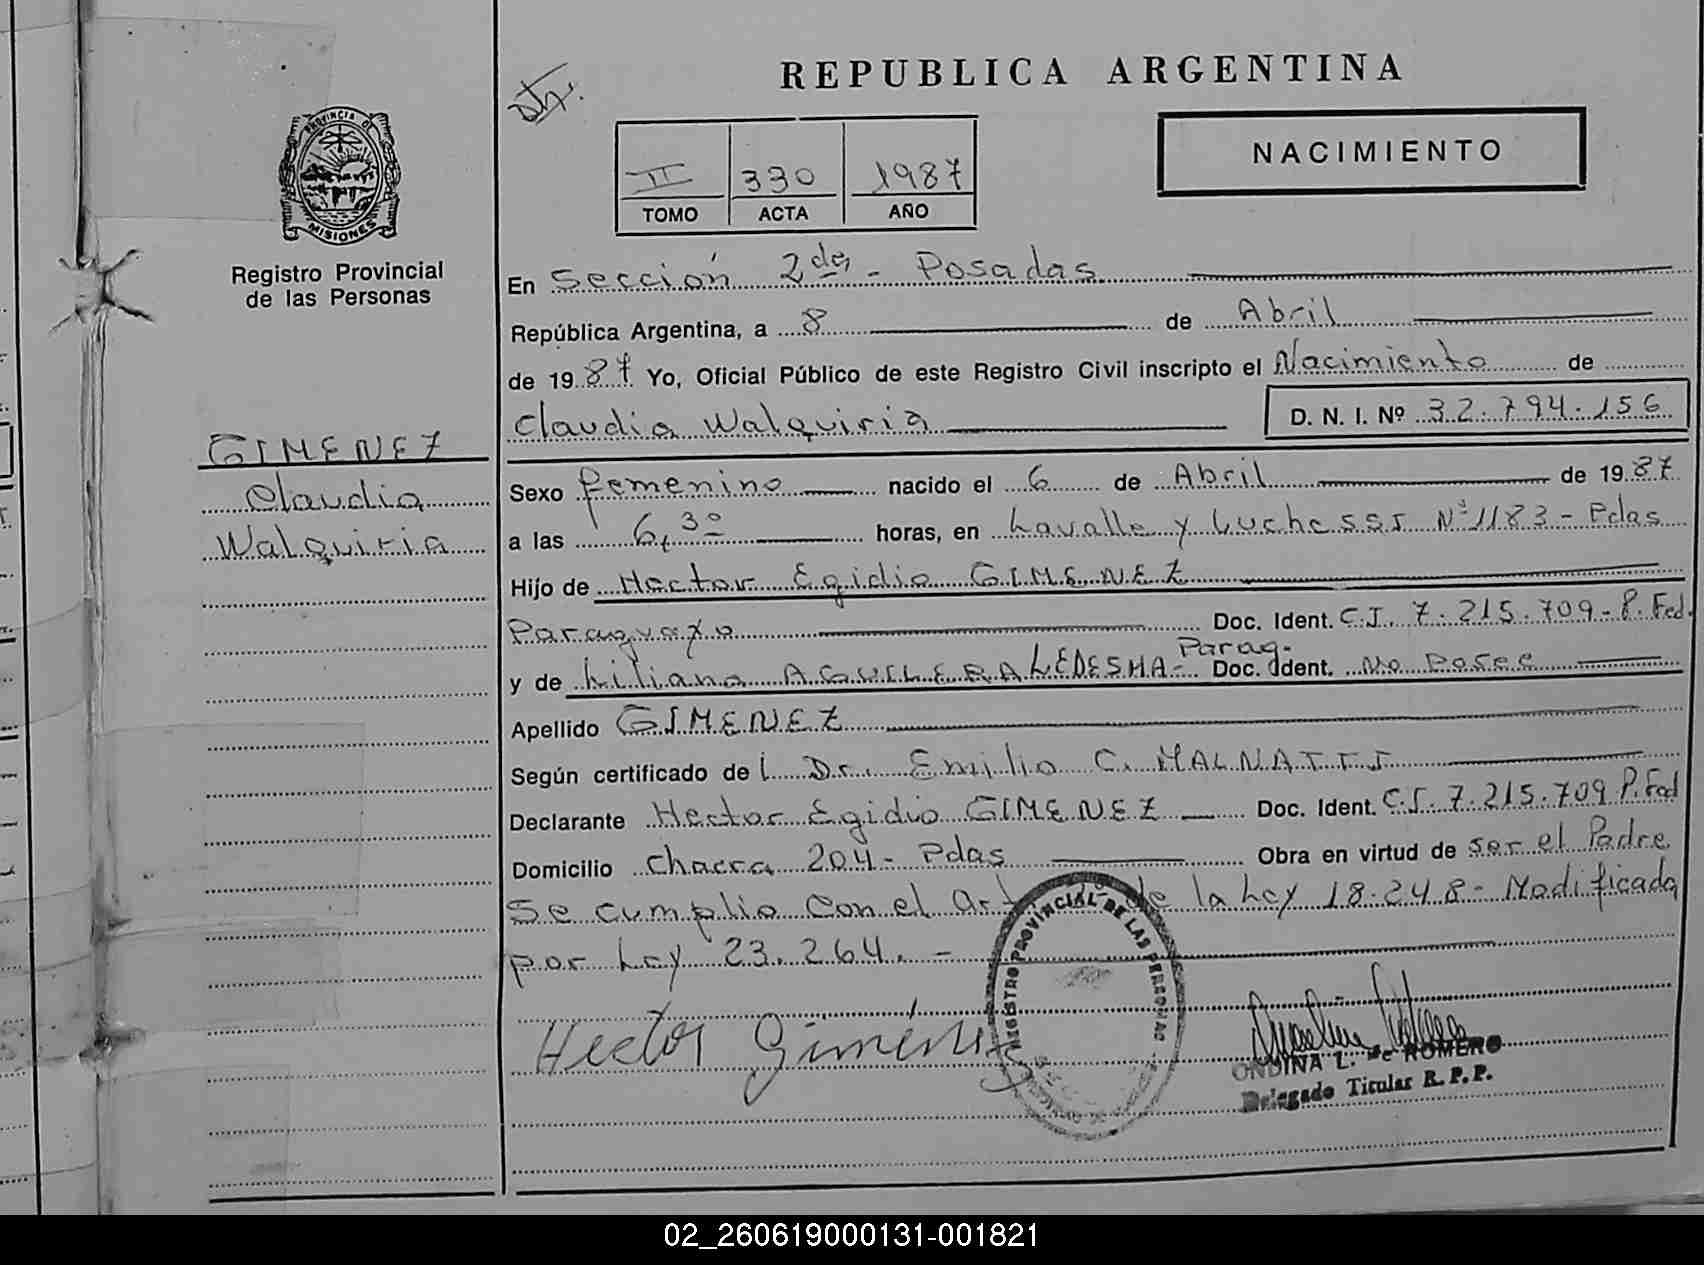 REPUBLICA ARGENTINA
NACIMIENTO
II 330 1987
TOMO ACTA AÑO
PROVINCIA DE MISIONES
Registro Provincial
de las Personas
GIMENEZ
Claudia
Walquiria
En Sección 2da - Posadas
República Argentina, a 8 de Abril
de 1987 Yo, Oficial Público de este Registro Civil inscripto el Nacimiento de
Claudia Walquiria D. N. I. Nº 32.794.156
Sexo femenino nacido el 6 de Abril de 1987
a las 6,30 horas, en Lavalle y Luchessi Nº 1183 - Pdas
Hijo de Hector Egidio GIMENEZ
Paraguayo Doc. Ident. C.I. 7.215.709 - P. Fed.
y de Liliana AGUILERA LEDESMA - Parag. Doc. Ident. No Posee
Apellido GIMENEZ
Según certificado del Dr. Emilio C. MALNATTI
Declarante Hector Egidio GIMENEZ Doc. Ident. C.I. 7.215.709 P. Fed
Domicilio Chacra 204 - Pdas Obra en virtud de ser el Padre
Se cumplio con el art de la Ley 18.248 - Modificada
por Ley 23.264. -
Hector Giménez
REGISTRO PROVINCIAL DE LAS PERSONAS
ONDINA L. de ROMERO
Delegado Titular R. P. P.
02_260619000131-001821